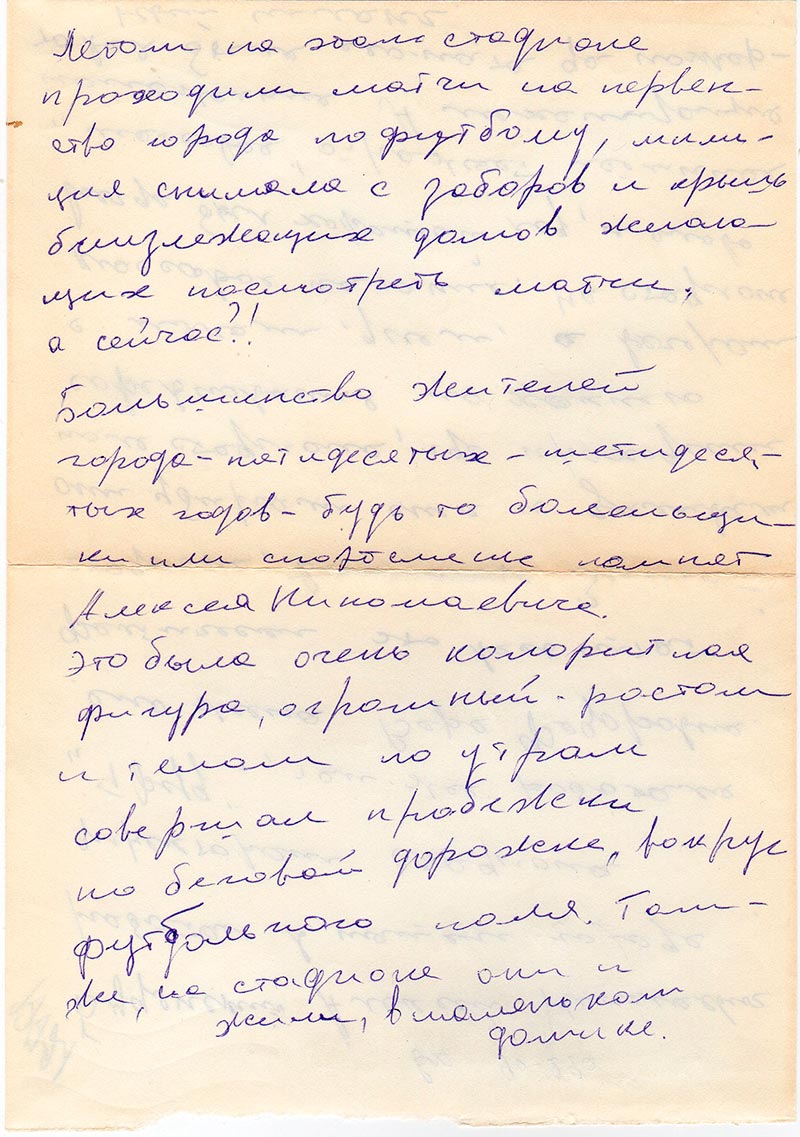 Летом на этом стадионе
проходили матчи на первен-
ство города по футболу, мили-
ция снимала с заборов и крыш
близлежащих домов желаю-
щих посмотреть матчи,
а сейчас?!
Большинство жителей
города - пятидесятых - шестидеся-
тых годов - будь то болельщи-
ки или спортсмены помнят
Алексея Николаевича.
Это была очень колоритная
фигура, огромный - ростом
и телом по утрам
совершал пробежки
по беговой дорожке, вокруг
футбольного поля. Там-
же, на стадионе они и
жили, в маленьком
домике.